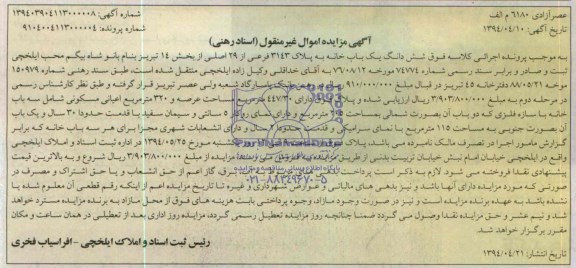 عصرآزادی ۶۱۸۰ م الف
شماره آگهی: ۱۳۹۴۰۳۹۰۴۱۱۳۰۰۰۰۰۸
تاریخ آگهی: ۱۳۹۴/۰۴/۱۰
شماره پرونده: ۹۱۰۴۰۰۴۱۱۳۰۰۰۰۰۴
آگهی مزایده اموال غیرمنقول (اسناد رهنی)
به موجب پرونده اجرائی کلاسه فوق شش دانگ یک باب خانه به پلاک ۳۱۴۳ فرعی از ۲۹ اصلی از بخش ۱۴ تبریز بنام بانو شاه بیگم محب ایلخچی
ثبت و صادر و برابر سند رسمی شماره ۷۴۷۷۴ مورخه ۷۶/۰۸/۱۲ به آقای خداقلی وکیل زاده ایلخچی منتقل شده است، طبق سند رهنی شماره ۱۵۰۹۷۹
مورخه ۸۸/۰۵/۲۱ دفترخانه ۴۵ تبریز در قبال مبلغ ۹۱۰/۰۰۰/۰۰۰ پاسارگاد شعبه ولی عصر تبریز قرار گرفته و طبق نظر کارشناس رسمی
در مرحله دوم به مبلغ ۳/۹۰۳/۸۰۰/۰۰۰ ریال ارزیابی شده و پلاک فوق دارای ۴۴۷/۳۰ مترمربع مساحت عرصه و ۳۲۰ مترمربع اعیانی مسکونی شامل سه باب
خانه با سازه فلزی که دو باب آن بصورت شمالی بمساحت مترمربع و دارای نمای روکار ۵ سانتی و سیمان سفید با قدمت حدودا ۳۰ سال و یک باب
آن بصورت جنوبی به مساحت ۱۱۵ مترمربع با نمای سرامیکی و قدمت حدودا سال و دارای انشعابات شهری مجزا برای هر سه باب خانه که برابر
گزارش مامور اجرا در تصرف مالک نامبرده می باشد، پلاک مورخه ۱۳۹۴/۰۵/۲۵ در اداره ثبت اسناد و املاک ایلخچی
واقع در ایلخچی خیابان امام نبش خیابان تربیت بدنی از طریق مزایده از مبلغ ۳/۹۰۳/۸۰۰/۰۰۰ ریال شروع و به بالاترین قیمت
پیشنهادی نقدا فروخته می شود لازم به ذکر است پرداخت برق، گاز اعم از حق انشعاب و یا حق اشتراک و مصرف در
صورتی که مورد مزایده دارای آنها باشد و نیز بدهی های مالیاتی و عوارض شهرداری و غیره تا تاریخ مزایده اعم از اینکه رقم قطعی آن معلوم شده یا
نشده باشد به عهده برنده مزایده است و نیز در صورت وجود مازاد، وجوه پرداختی بابت هزینه های فوق از محل مازاد به برنده مزایده مسترد خواهد
شد و نیم عشر و حق مزایده نقدا وصول می گردد ضمنا چنانچه روز مزایده تعطیل رسمی گردد، مزایده روز اداری بعد از تعطیلی در همان ساعت و مکان
مقرر برگزار خواهد شد.
تاریخ انتشار: ۱۳۹۴/۰۴/۲۱
رئیس ثبت اسناد و املاک ایلخچی - افراسیاب فخری
۰۲۱-۸۸۳۴۹۶۷۰-۵